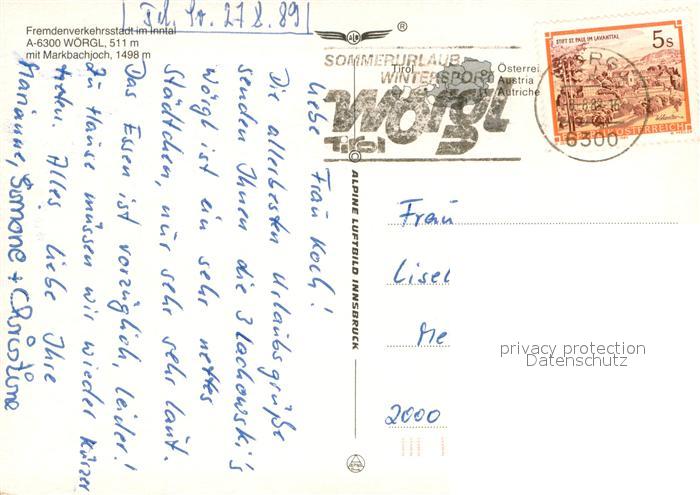 Fremdenverkehrsstadt im Inntal
A-6300 WÖRGL, 511 m
mit Markbachjoch, 1498 m
27.8.89
Liebe Frau Koch!
Die allerbesten Urlaubsgrüße
senden Ihnen die 3 Lachowski's
Wörgl ist ein sehr nettes
Städtchen, nur sehr sehr laut.
Das Essen ist vorzüglich, leider!
Zu Hause müssen wir wieder kürzer
treten. Alles Liebe Ihre
Marianne, Simone + Christine
ALPINE LUFTBILD INNSBRUCK
®
SOMMERURLAUB
WINTERSPORT
Wörgl
Tirol
Tirol
Österrei
Austria
Autriche
STIFT ST. PAUL IM LAVANTTAL
5s
REPUBLIK ÖSTERREICH
6300
Frau
Lisel
Me
2000
privacy protection
Datenschutz